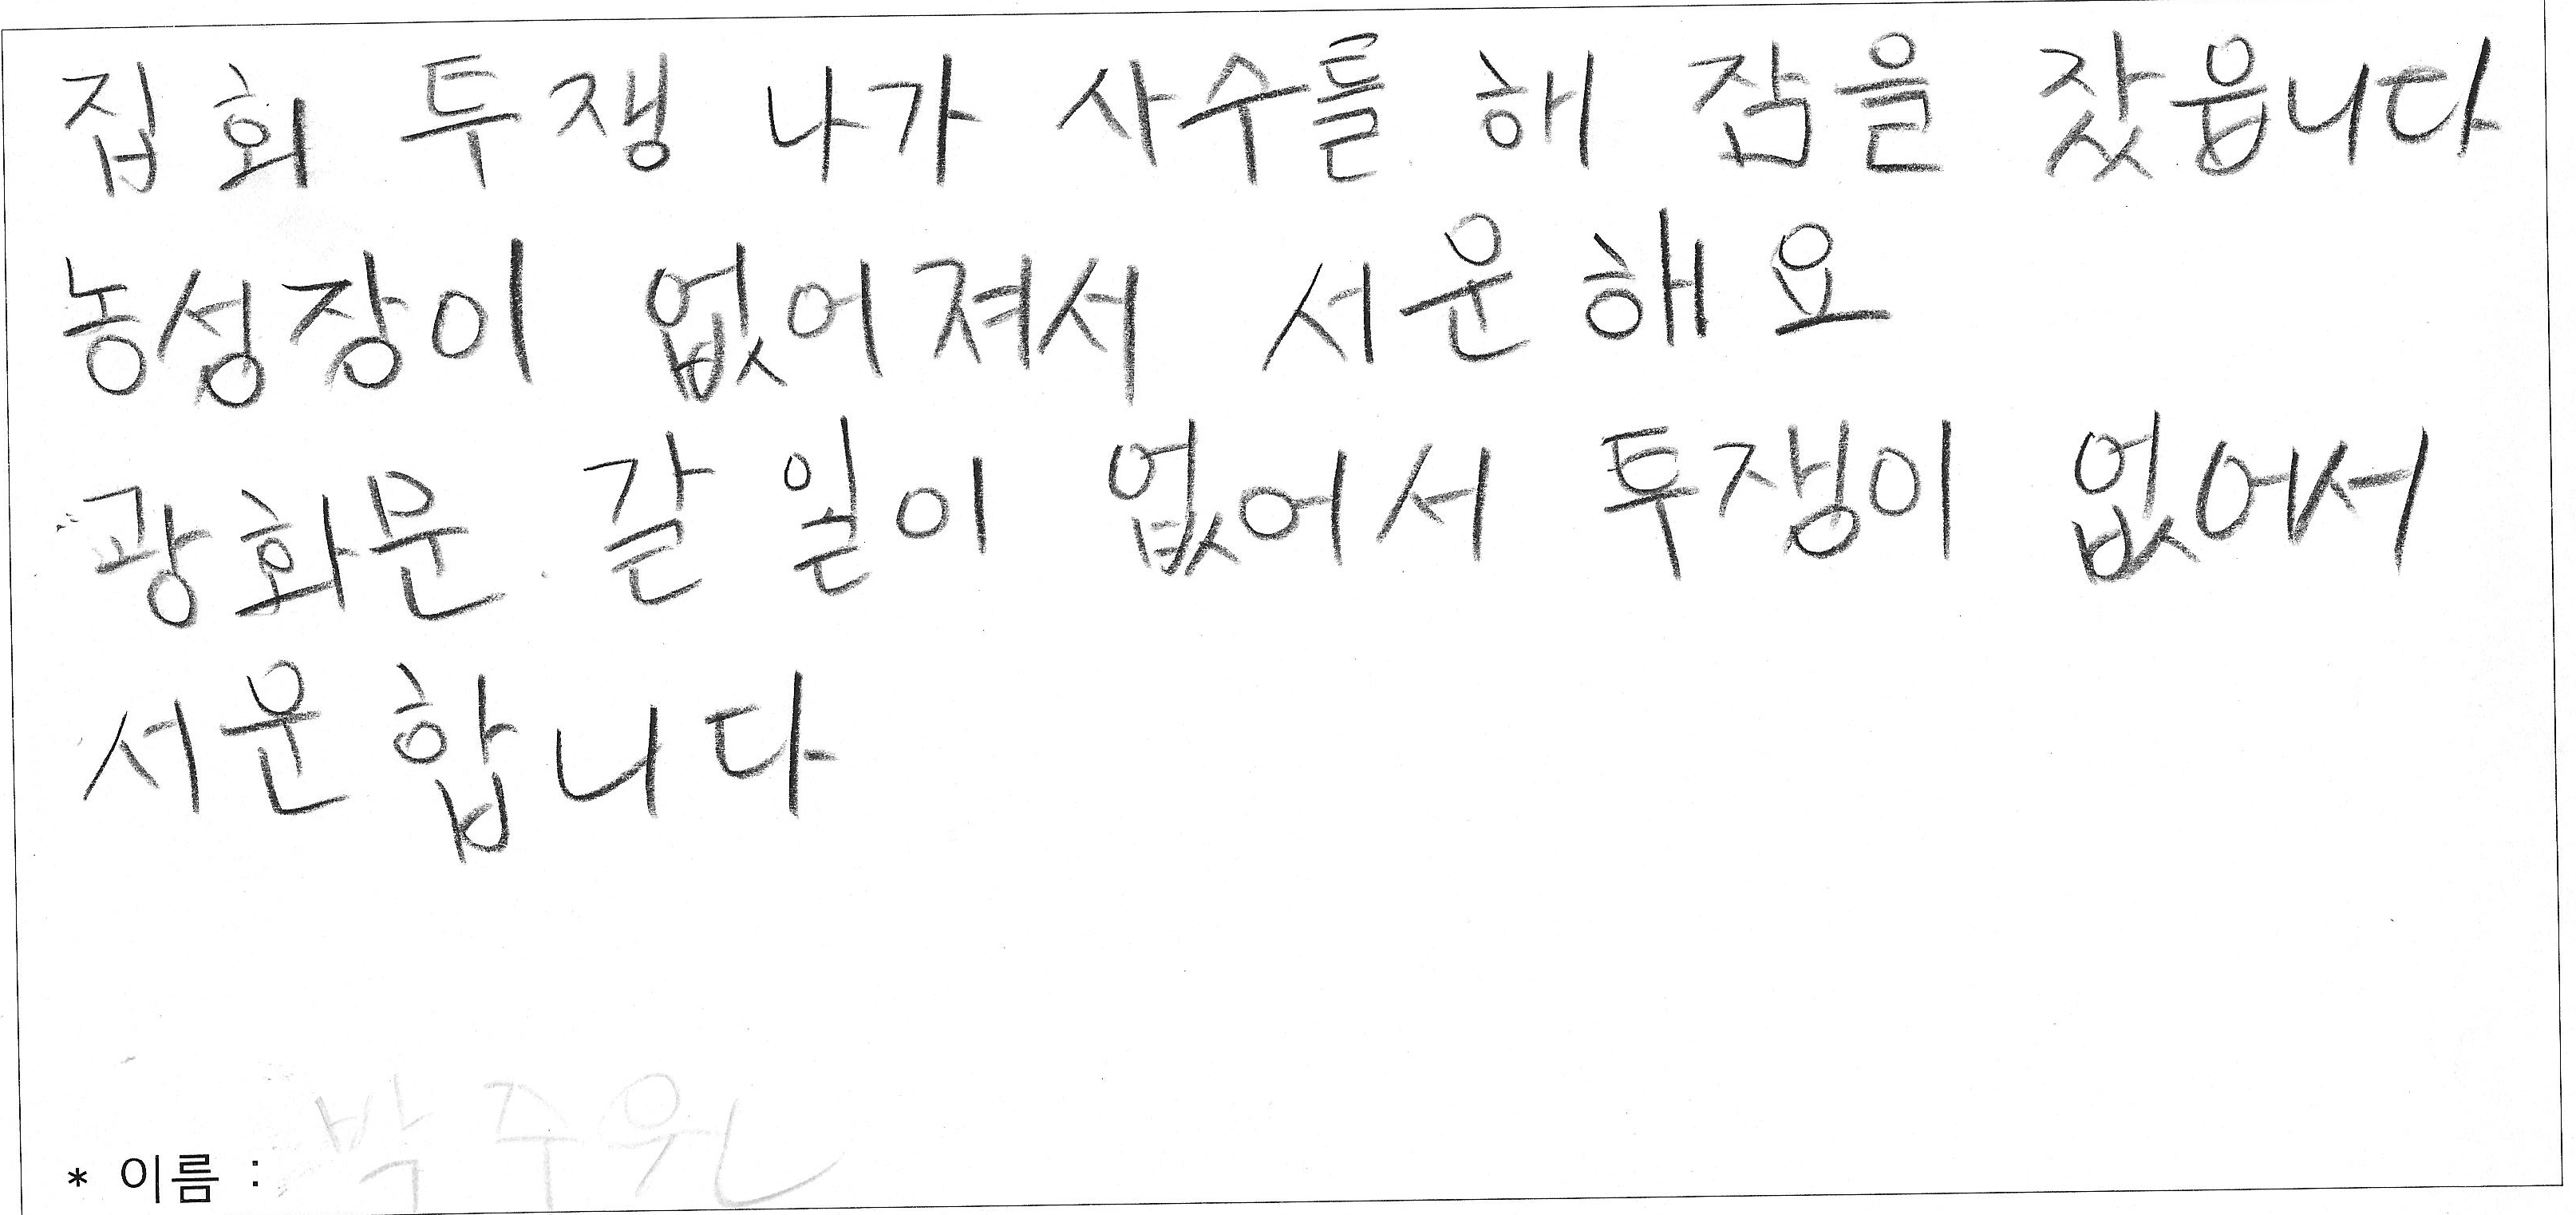 집회 투쟁 나가 사수를 해 잠을 잤읍니다
농성장이 없어져서 서운해요
광화문 갈 일이 없어서 투쟁이 없어서
서운합니다
* 이름 : 박주원